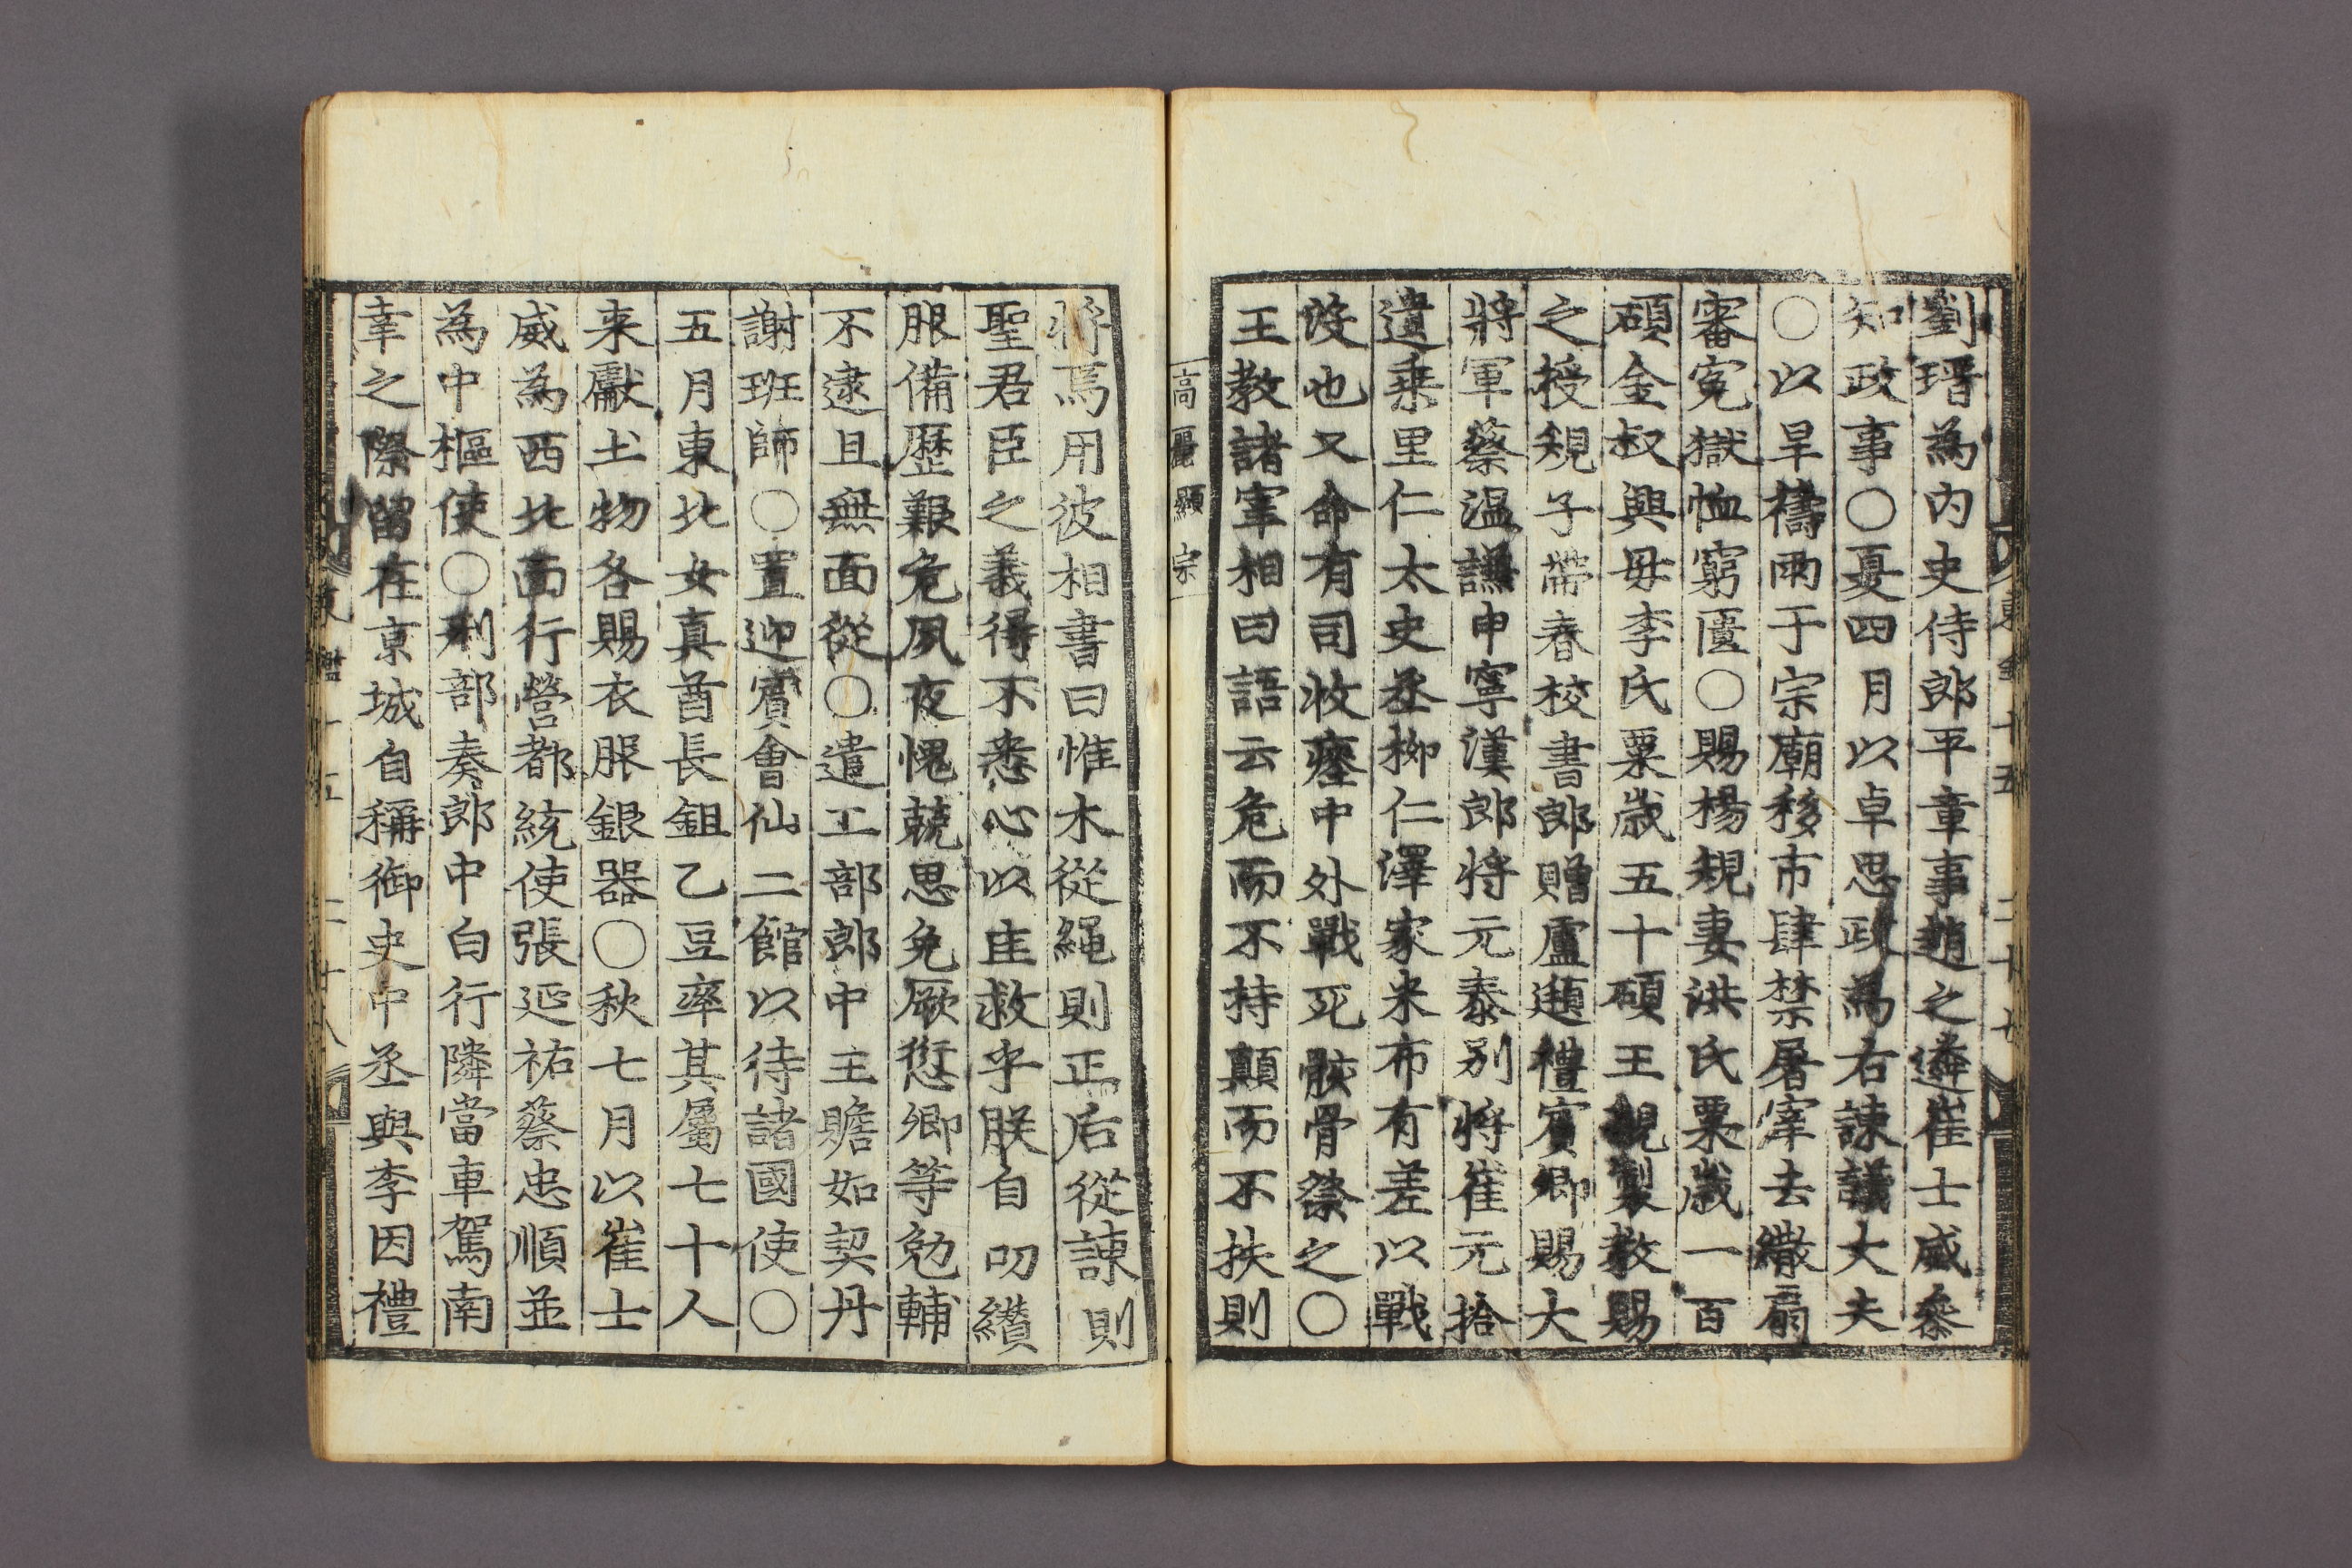 劉瑨為內史侍郎平章事趙之遴崔士威叅
知政事○夏四月以卓思政為右諫議大夫
○以旱禱雨于宗廟移市肆禁屠宰去繖扇
審寃獄恤窮匱○賜楊規妻洪氏粟歲一百
碩金叔興母李氏粟歲五十碩王親製教賜
之授規子帶春校書郎贈盧頲禮賓卿賜大
將軍蔡溫謙申寧漢郎將元泰別將崔元拾
遺乘里仁太史丞柳仁澤家米布有差以戰
沒也又命有司收瘞中外戰死骸骨祭之○
王教諸宰相曰語云危而不持顛而不扶則
高麗顯宗
將焉用彼相書曰惟木從繩則正后從諫則
聖君臣之義得不悉心以匡救乎朕自叨纘
服備歷艱危夙夜愧兢思免厥愆卿等勉輔
不逮且無面從○遣工部郎中主贍如契丹
謝班師○置迎賓會仙二館以待諸國使○
五月東北女真酋長鉏乙豆率其屬七十人
来獻土物各賜衣服銀器○秋七月以崔士
威為西北面行營都統使張延祐蔡忠順並
為中樞使○刑部奏郎中白行隣當車駕南
幸之際留在京城自稱御史中丞與李因禮